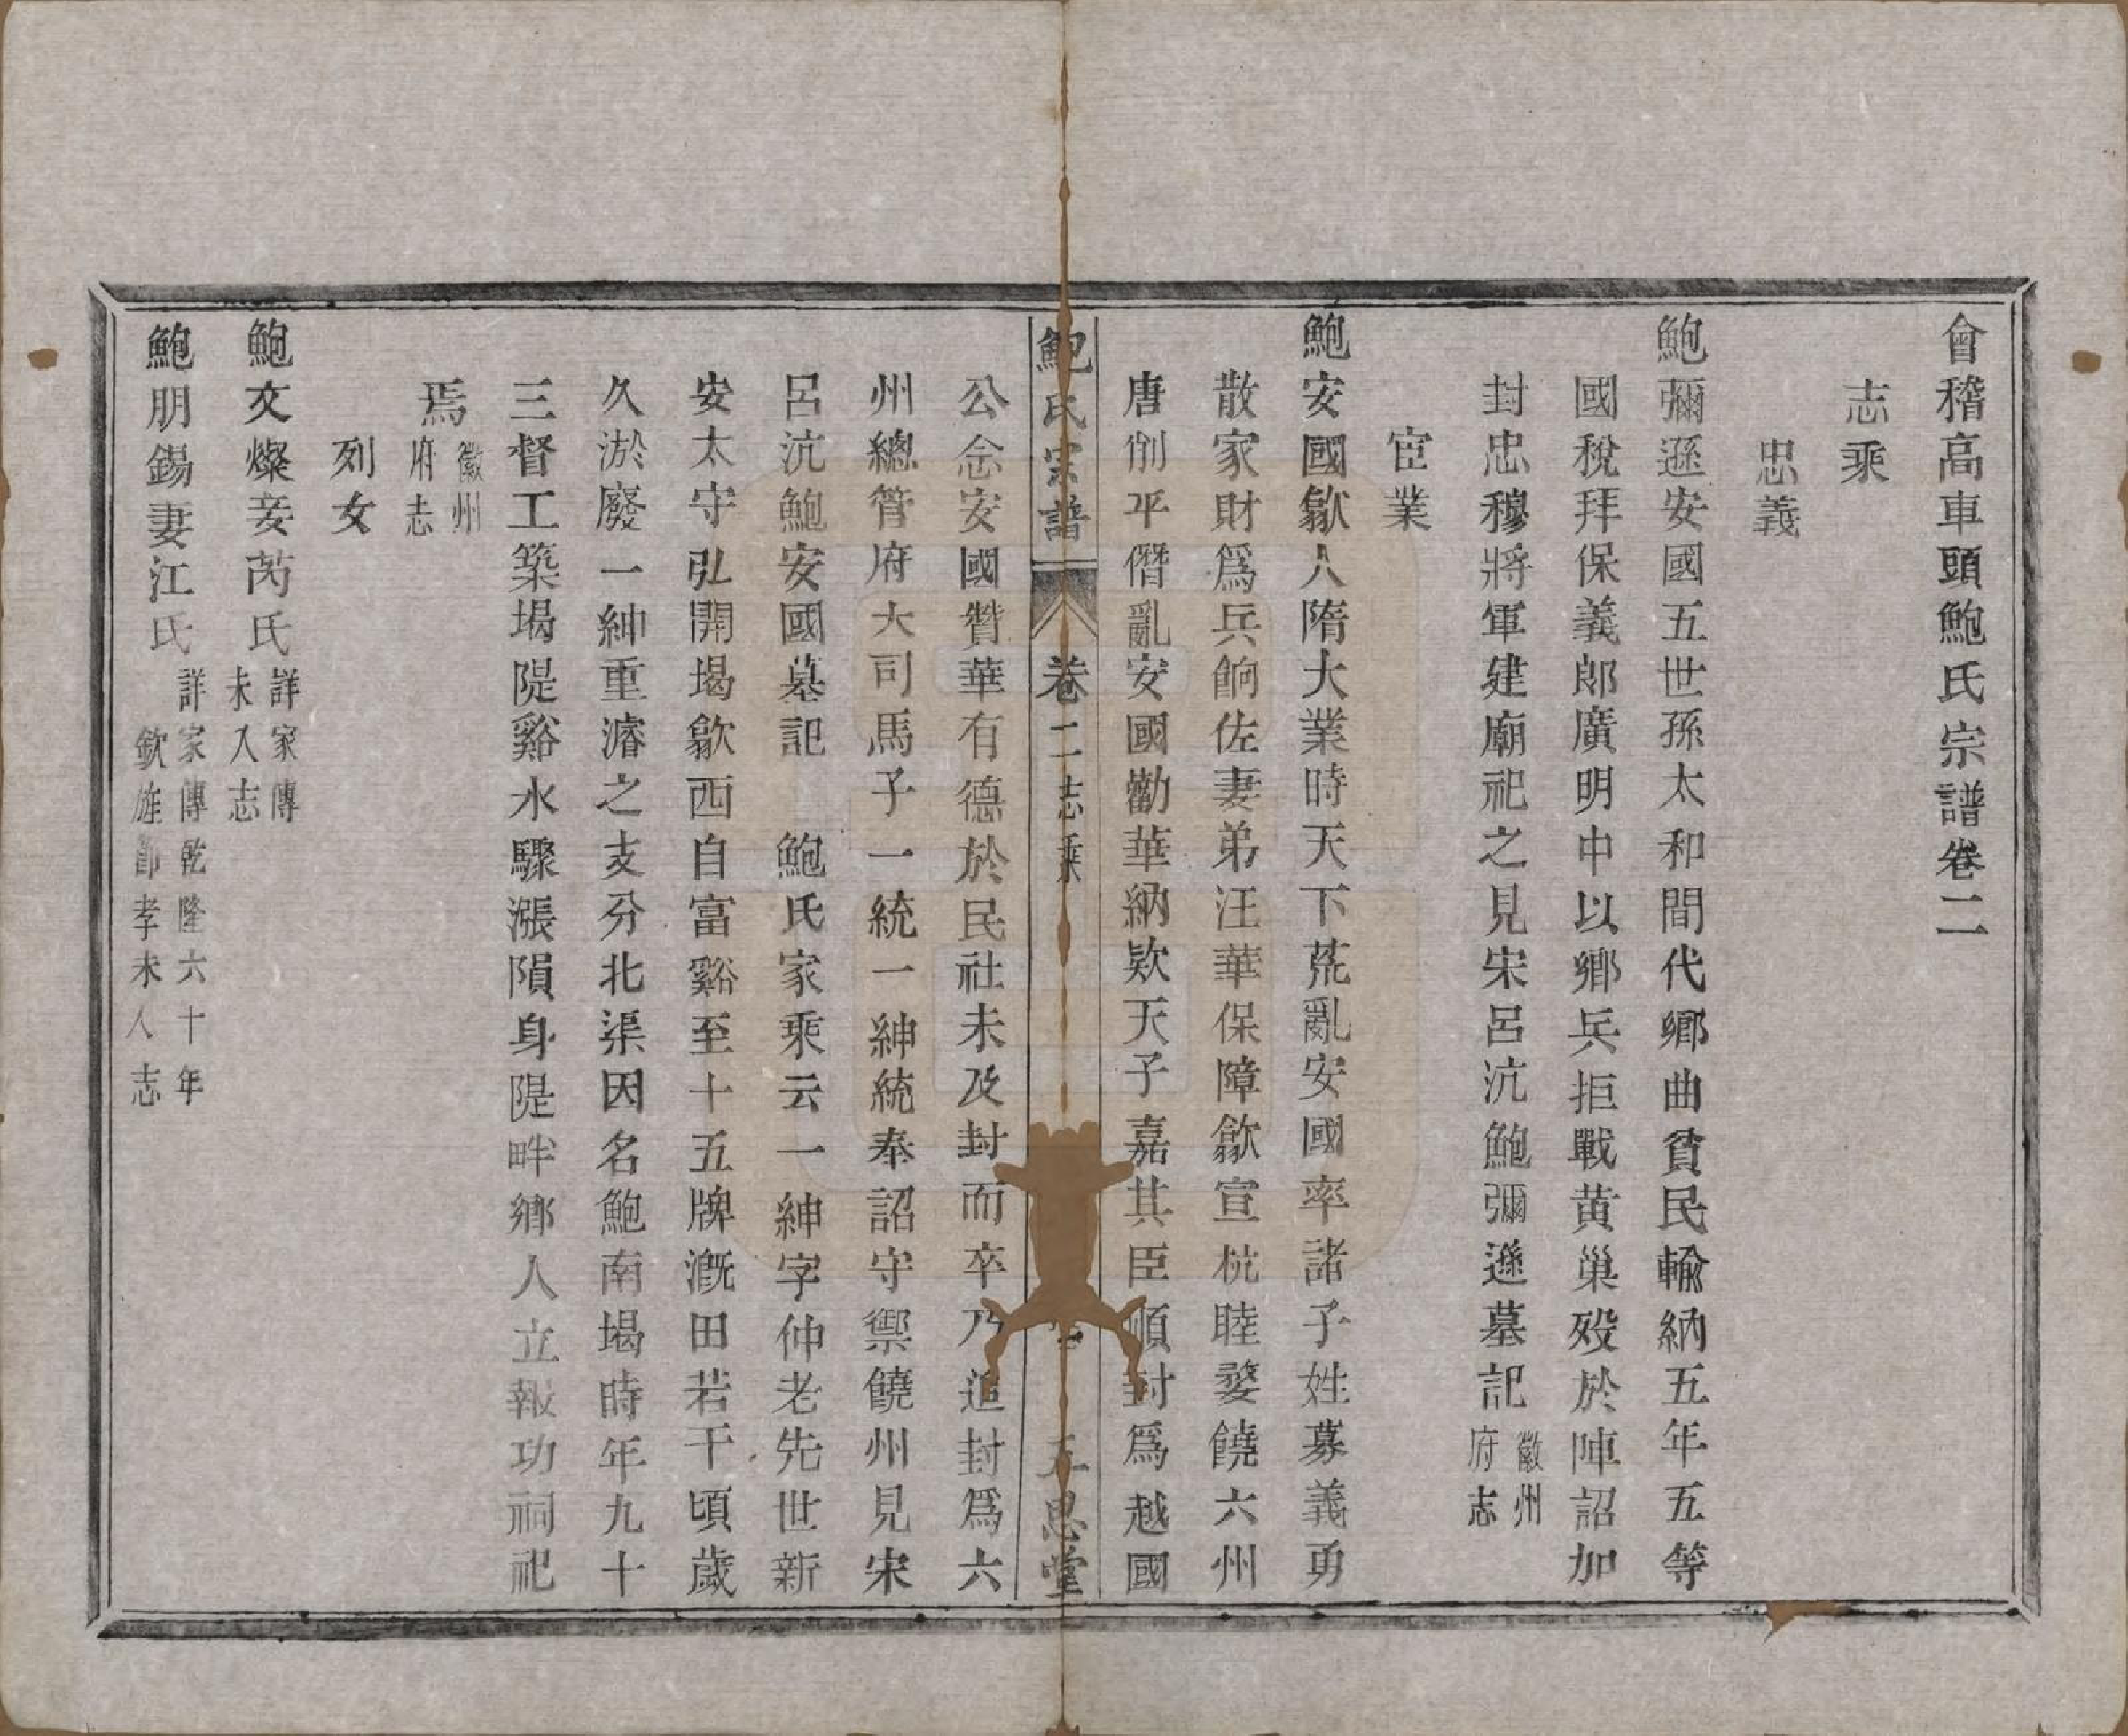 會稽高車頭鮑氏宗譜卷二
志乘
忠義
鮑彌遜安國五世孫太和間代鄉曲貧民輸納五年五等
國稅拜保義郎廣明中以鄉兵拒戰黃巢歿於陣詔加
封忠穆將軍建廟祀之見宋呂沆鮑彌遜墓記徽州府志
宦業
鮑安國歙人隋大業時天下荒亂安國率諸子姓募義勇
散家財爲兵餉佐妻弟汪華保障歙宣杭睦婺饒六州
唐削平僭亂安國勸華納欵天子嘉其臣順封爲越國
鮑氏宗譜 卷二志乘 五思堂
公念安國贊華有德於民社未及封而卒乃追封爲六
州總管府大司馬子一統一紳統奉詔守禦饒州見宋
呂沆鮑安國墓記 鮑氏家乘云一紳字仲老先世新
安太守弘開堨歙西自富谿至十五牌溉田若干頃歲
久淤廢一紳重濬之支分北渠因名鮑南堨時年九十
三督工築堨隄谿水驟漲隕身隄畔鄉人立報功祠祀
焉徽州府志
列女
鮑文燦妾芮氏詳家傳未入志
鮑朋錫妻江氏詳家傳乾隆六十年欽旌節孝未入志